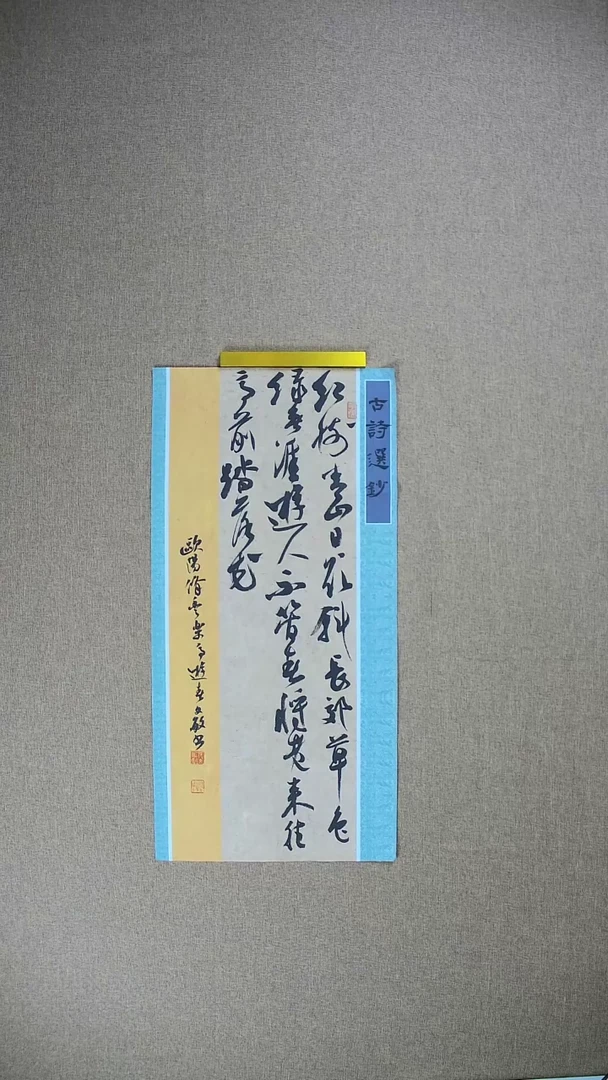 古詩選鈔
紅樹青山日欲斜長郊草色
綠無涯遊人不管春將老來往
亭前踏落花
歐陽脩豐樂亭遊春